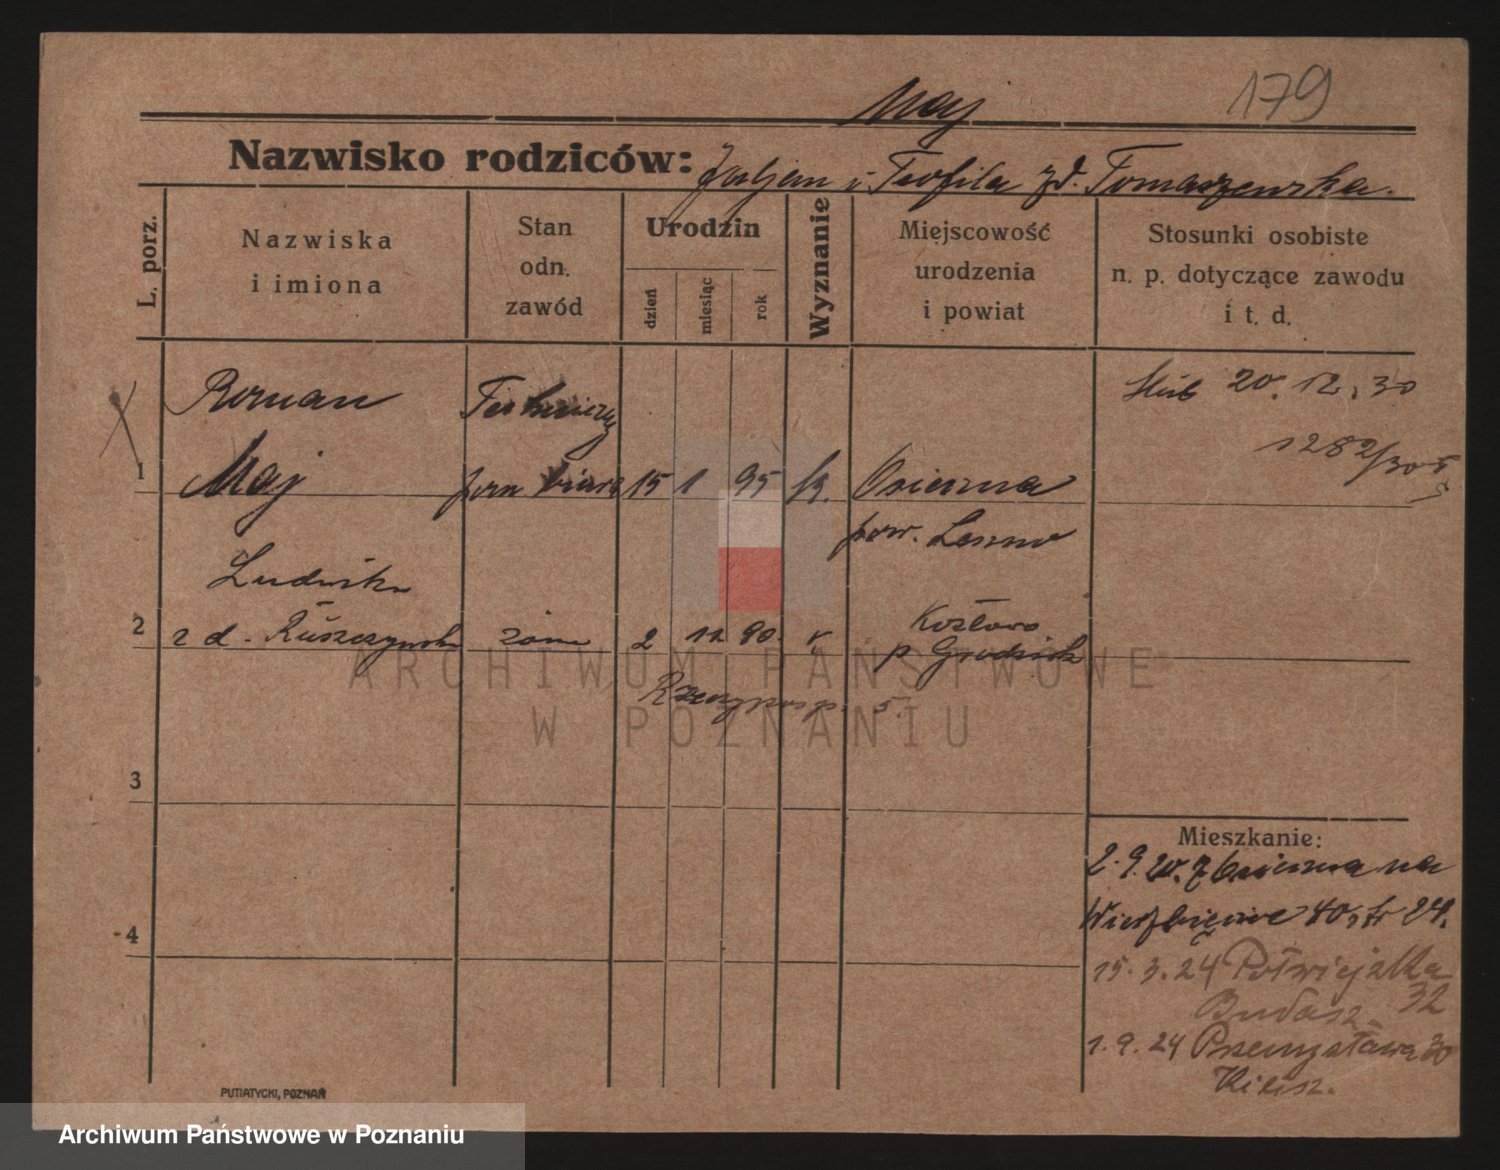 Maj
179
Nazwisko rodziców: i Teofila zd. Tomaszewska.
L. porz.
Nazwiska
i imiona
Stan
odn.
zawód
Urodzin
dzień
miesiąc
rok
Wyznanie
Miejscowość
urodzenia
i powiat
Stosunki osobiste
n. p. dotyczące zawodu
i t. d.
Roman
ślub 20. 12. 30
1282/30
1
Maj
15 1 95
Osieczna
pow. Leszno
Ludwika
2
z d. Ruszczyńska
2 12 90.
Kozłowo
p. Grodzisk
Rzeczyposp. 5
3
4
Mieszkanie:
2. 9. 20. z Osieczna na
Wierzbięcice 40, tr 24.
15. 3. 24 Półwiejska
32
1. 9. 24 Przemysława 30
PUTIATYCKI, POZNAŃ
ARCHIWUM PAŃSTWOWE
W POZNANIU
Archiwum Państwowe w Poznaniu